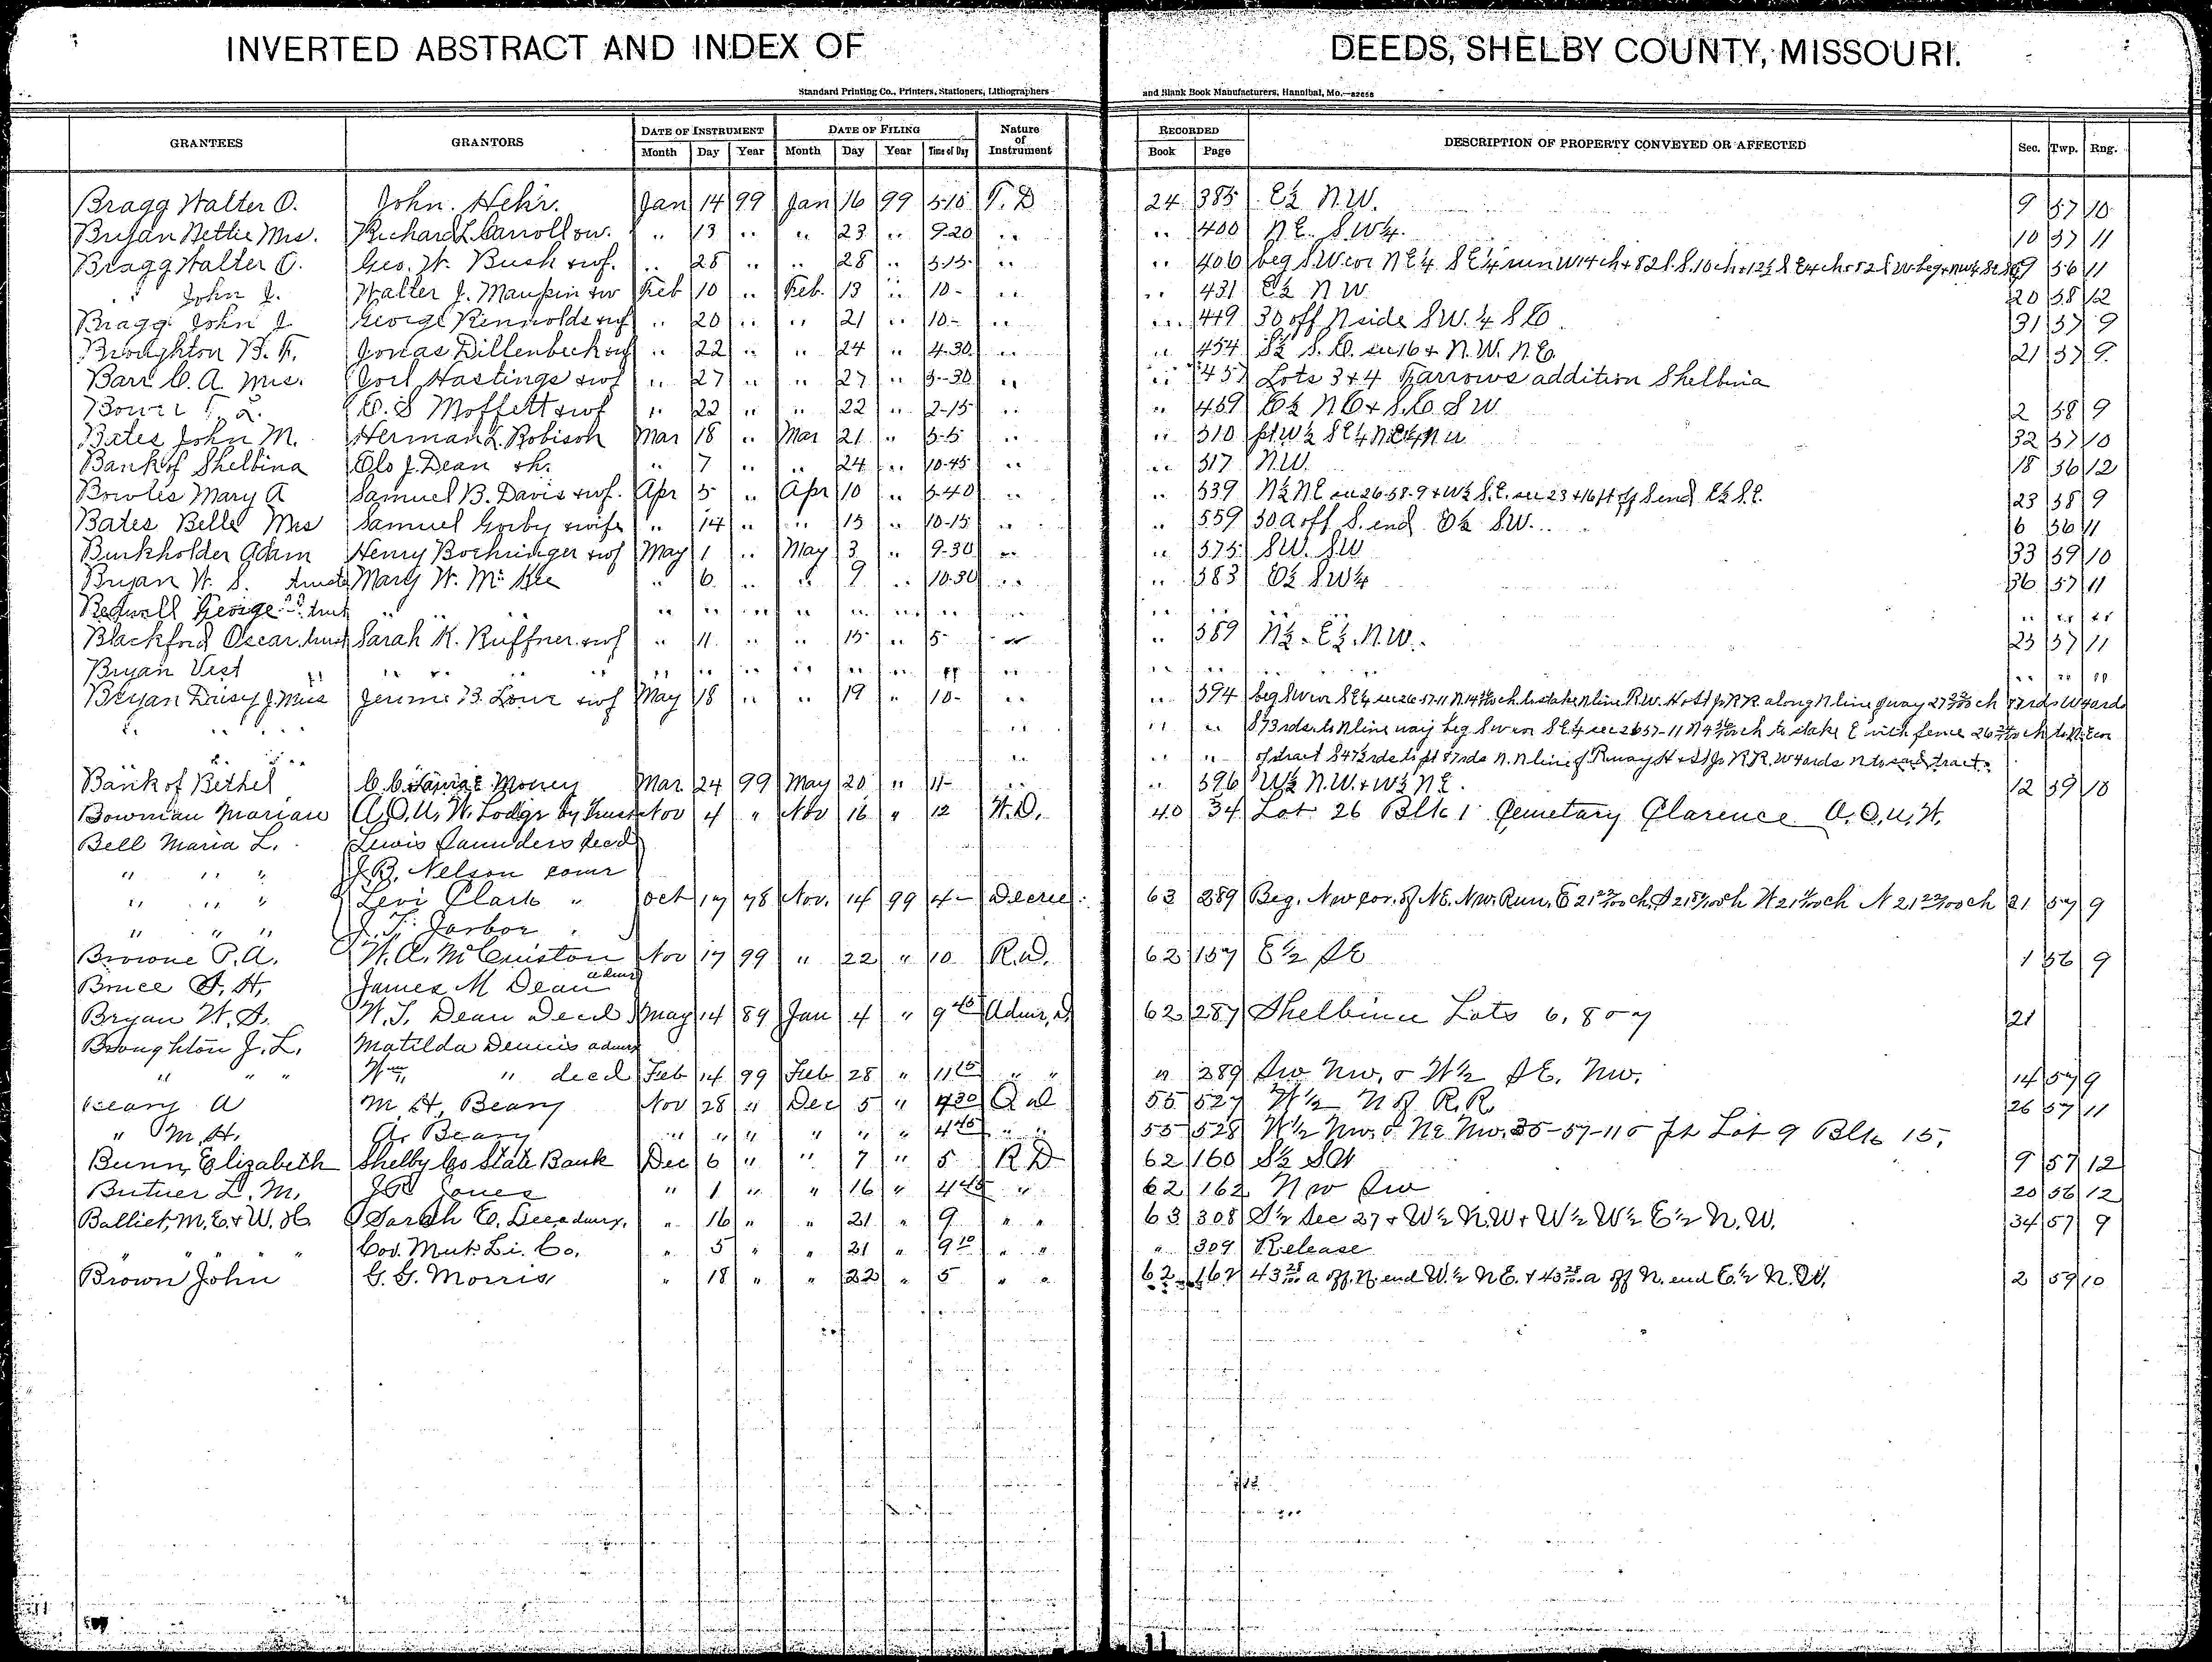 INVERTED ABSTRACT AND INDEX OF DEEDS, SHELBY COUNTY, MISSOURI.
Standard Printing Co., Printers, Stationers, Lithographers and Blank Book Manufacturers, Hannibal, Mo.
GRANTEES GRANTORS DATE OF INSTRUMENT DATE OF FILING Nature of Instrument RECORDED DESCRIPTION OF PROPERTY CONVEYED OR AFFECTED Sec. Twp. Rng.
Month Day Year Month Day Year Time of Day Book Page
Bragg Walter O. John. Hehr. Jan 14 99 Jan 16 99 3-10 T. D 24 385 E½ N.W. 9 57 10
Bryan Bettie Mrs. Richard L. Carroll ow. " 13 " " 23 " 9-20 " " 400 N.E. S.W¼. 10 57 11
Bragg Walter O. Geo. W. Bush & wf. " 25 " " 28 " 3-15 " " 406 beg SW cor NE¼ SE¼ run W 56 11
" John J. Walter J. Maupin & w Feb 10 " Feb. 13 " 10- " " 431 E½ N W 20 58 12
Bragg John J. George Rennolds & wf " 20 " " 21 " 10- " " 449 30 off N side S.W. ¼ S E. 31 57 9
Broughton B. F. Jonas Dillenbeck & wf " 22 " " 24 " 4-30 " " 454 S½ S. E. sec 16 & N. W. N. E. 21 57 9
Barr C. A. Mrs. Joel Hastings & wf " 27 " " 27 " 3-30 " " 457 Lots 3 & 4 Farrows addition Shelbina
Bower T. a. E. S Moffett & wf " 22 " " 22 " 2-15 " " 459 E½ N E & S.E. S W 2 58 9
Bates John M. Herman L. Robison Mar 18 " Mar 21 " 3-5 " " 510 pt W½ SE¼ 32 57 10
Bank of Shelbina Olo J. Dean sh. " 7 " " 24 " 10-45 " " 517 N.W. 18 56 12
Bowles Mary A Samuel B. Davis & wf. Apr 5 " Apr 10 " 3-40 " " 539 N½ NE sec 26-58-9 & W½ S.E. sec 23 & 16 ft off S end E½ S.E. 23 58 9
Bates Belle Mrs Samuel Gorby & wife " 14 " " 15 " 10-15 " " 559 30 A off S. end E½ S.W. 6 56 11
Burkholder Adam Henry Bochinger & wf May 1 " May 3 " 9-30 " " 575 S.W. S.W 33 59 10
Bryan W. S. Mary W. McKee " 6 " " 9 " 10-30 " " 583 E½ S.W¼ 36 57 11
George " " " " " " " " " " " " " "
Blackford Oscar Sarah K. Ruffner & wf " 11 " " 15 " 5- " " 589 N½ E½ N.W. 23 57 11
Bryan Vest " " " " " " " " " " " " " "
Bryan Daisy J. Miss Jennie B. Lowe & wf May 18 " " 19 " 10- " " 594 beg SW cor SE¼ sec 26-57-11
" " " " " " " S 73 rds. to N line way beg SW cor SE¼ sec 26 57-11
" " " " " " " of tract
Bank of Bethel C. C. Money Mar. 24 99 May 20 " 11- " " 596 W½ N.W. & W½ N.E. 12 59 10
Bowman Marian A.O.U.W. Lodge by Nov 4 " Nov 16 " 12 W.D. 40 34 Lot 26 Blk 1 Cemetary Clarence A.O.U.W.
Bell Maria L. Lewis Saunders decd
" " " J. B. Nelson
" " " Levi Clark " Oct 17 78 Nov. 14 99 4- Decree 63 289 Beg. Nw cor. of NE. Nw. Run. E 21 31 57 9
" " " J. T. Jarbor "
Browne P.A. W. A. McCuiston Nov 17 99 " 22 " 10 R.D. 62 157 E½ SE 1 56 9
Bruce S. H. James M Dean admr
Bryan W. S. W. T. Dean Decd May 14 89 Jan 4 " 9 45 Admr. D 62 287 Shelbina Lots 6, 8 & 7 21
Broughton J. L. Matilda Dennis admx
" " " Wm. " decd Feb 14 99 Feb 28 " 11 15 " " " 289 Sw Nw, & W½ SE. Nw. 14 57 9
Beary A M. H. Beary Nov 28 " Dec 5 " 4 30 Q cl 55 527 W½ N of R.R. 26 57 11
" M. H. A. Beary " " " " " " 4 45 " " 55 528 W½ Nw. & NE Nw. 35-57-11 & pt Lot 9 Blk 15.
Bunn, Elizabeth Shelby Co State Bank Dec 6 " " 7 " 5 R. D 62 160 S½ SW 9 57 12
Butner L. M. Jones " 1 " " 16 " 4 45 " 62 162 Nw Sw 20 56 12
Balliet, M. E. & W. H. Sarah E. Lee admx. " 16 " " 21 " 9 " " 63 308 S½ Sec 27 & W½ N.W & W½ W½ E½ N. W. 34 57 9
" " " " Cov. Mut. Li. Co. " 5 " " 21 " 9 10 " " " 309 Release
Brown John G. G. Morris " 18 " " 22 " 5 " " 62 167 43 a off. N. end W.½ N E. & a off N. end E.½ N. W. 2 59 10